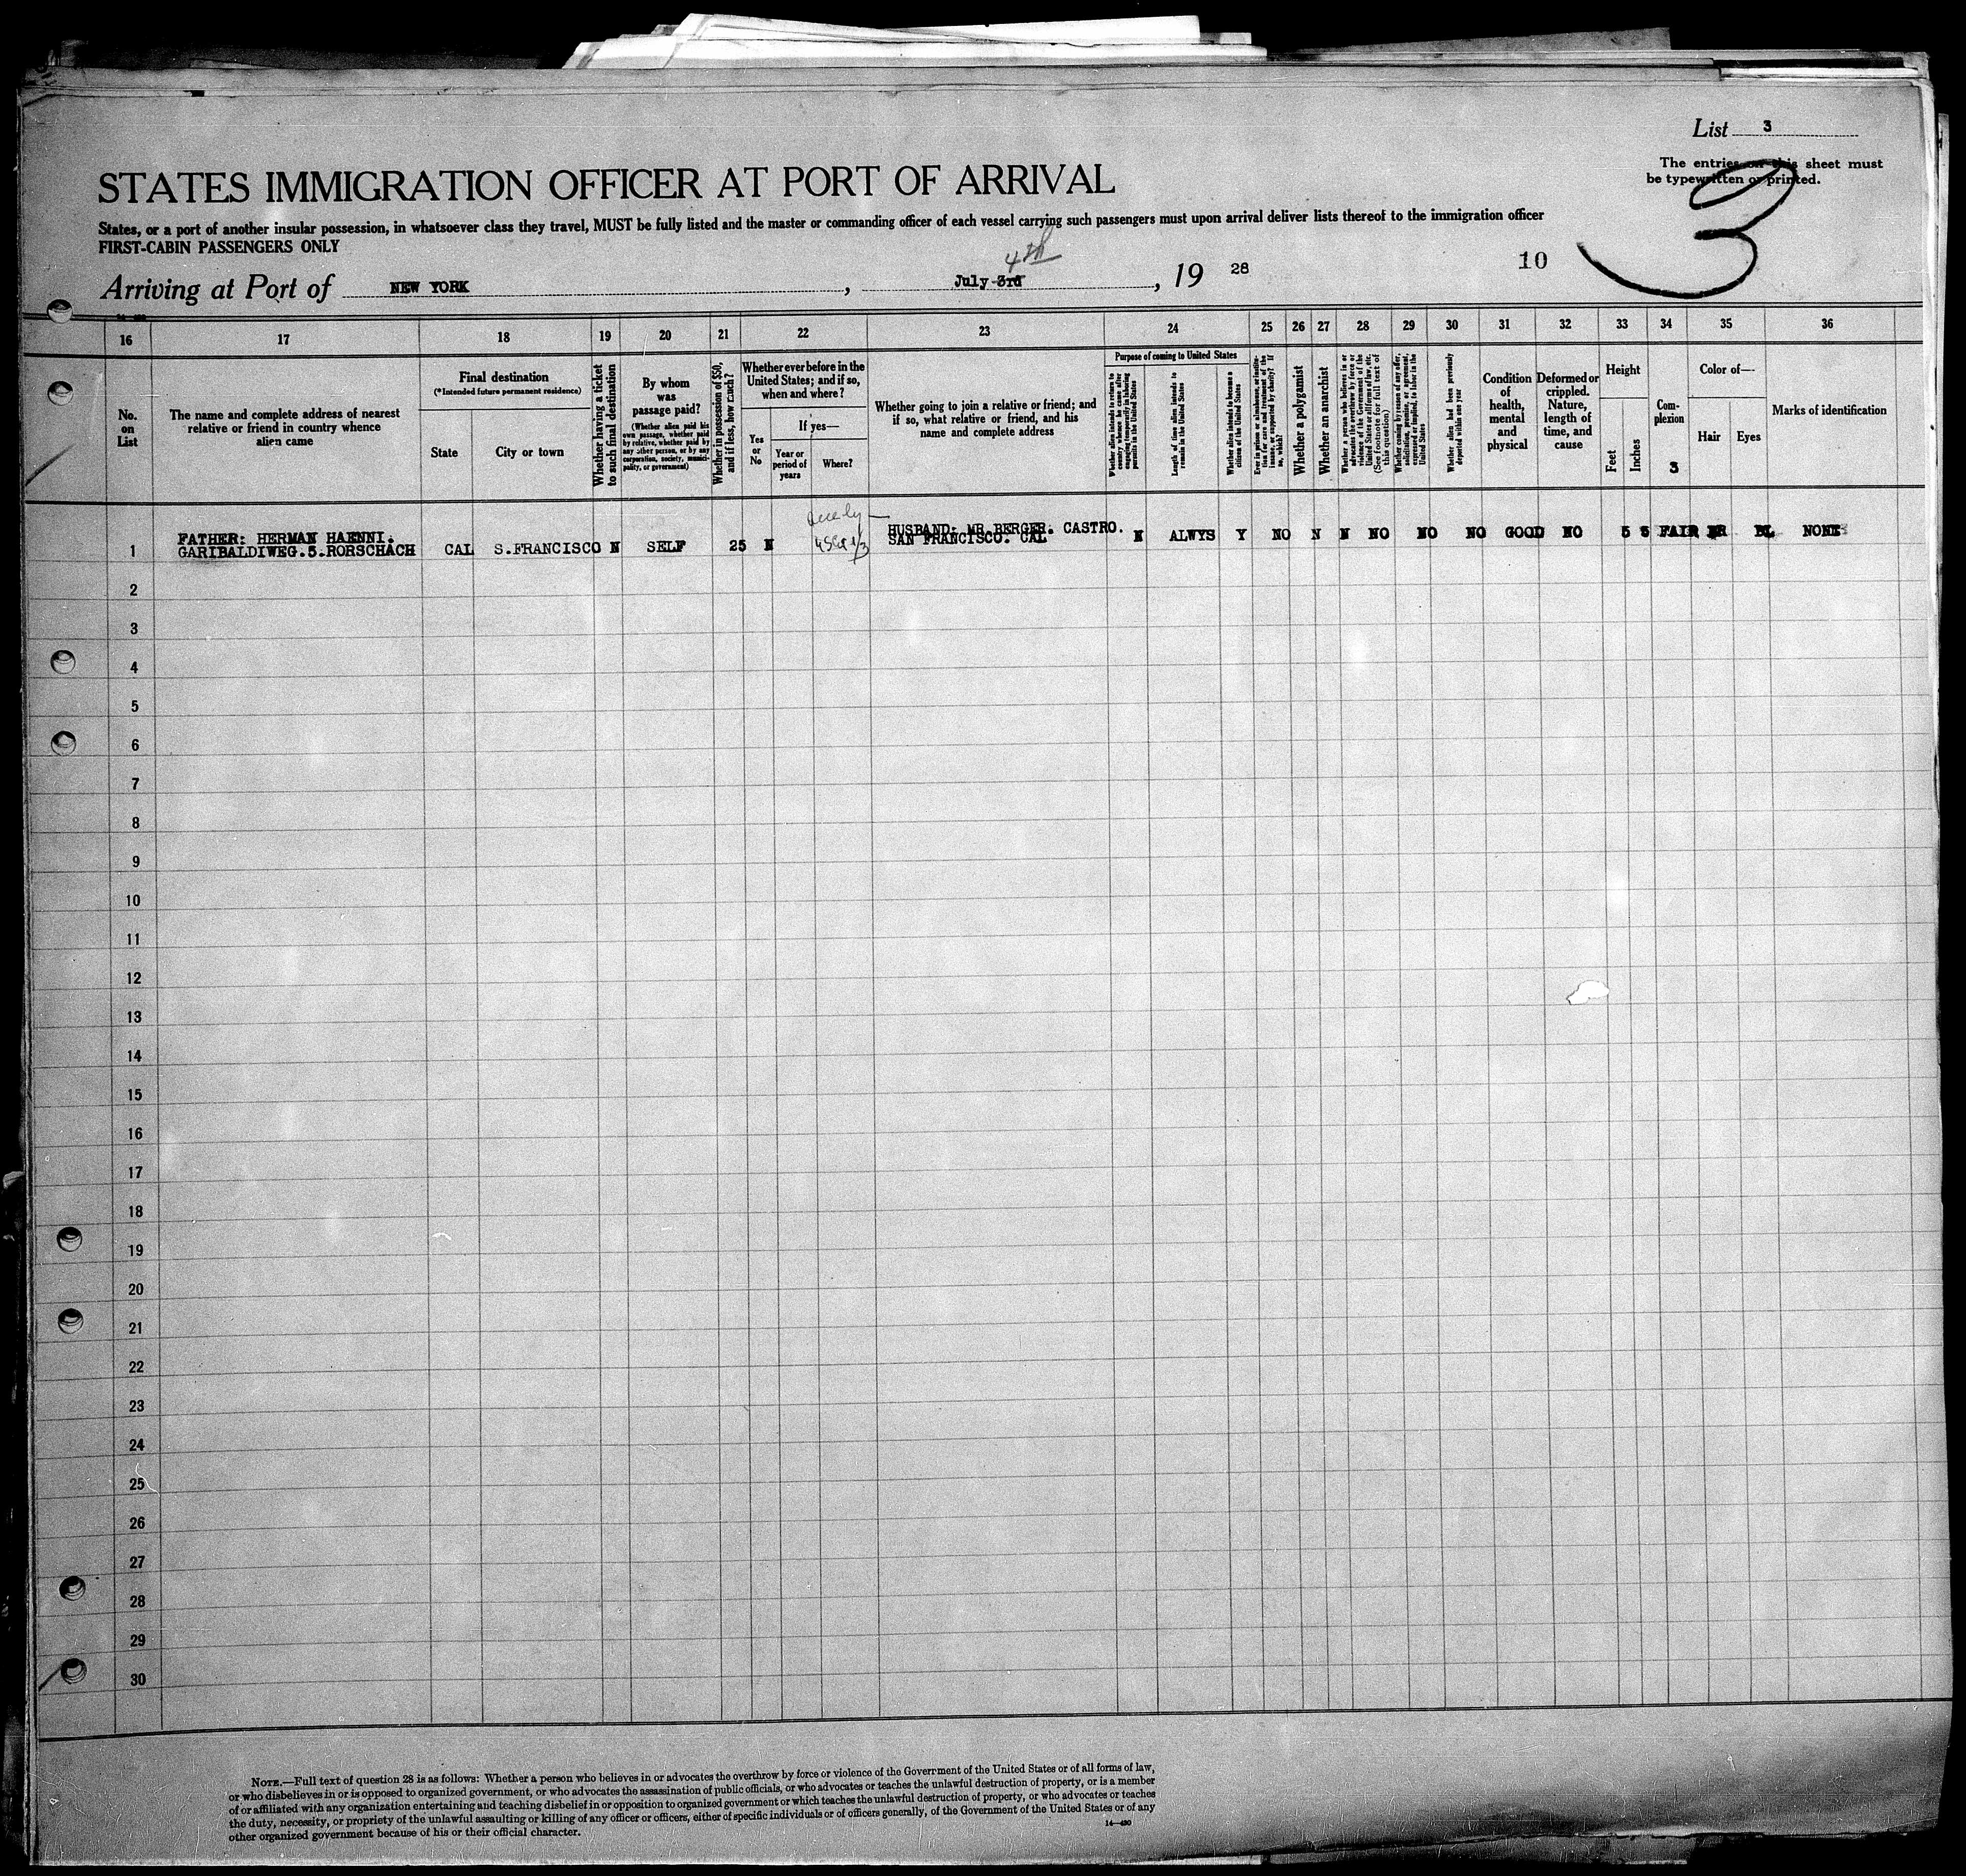 List 3
The entries on this sheet must
be typewritten or printed.
3
STATES IMMIGRATION OFFICER AT PORT OF ARRIVAL
States, or a port of another insular possession, in whatsoever class they travel, MUST be fully listed and the master or commanding officer of each vessel carrying such passengers must upon arrival deliver lists thereof to the immigration officer
FIRST-CABIN PASSENGERS ONLY
4th
10
Arriving at Port of NEW YORK, July 3rd, 19 28
16 17 18 19 20 21 22 23 24 25 26 27 28 29 30 31 32 33 34 35 36
No.
on
List
The name and complete address of nearest
relative or friend in country whence
alien came
Final destination
(*Intended future permanent residence)
State
City or town
Whether having a ticket
to such final destination
By whom
was
passage paid?
(Whether alien paid his
own passage, whether paid
by relative, whether paid by
any other person, or by any
corporation, society, munici-
pality, or government)
Whether in possession of $50,
and if less, how much?
Whether ever before in the
United States; and if so,
when and where?
Yes
or
No
If yes—
Year or
period of
years
Where?
Whether going to join a relative or friend; and
if so, what relative or friend, and his
name and complete address
Purpose of coming to United States
Whether alien intends to return to
country whence he came after
engaging temporarily in laboring
pursuits in the United States
Length of time alien intends to
remain in the United States
Whether alien intends to become a
citizen of the United States
Ever in prison or almshouse, or institu-
tion for care and treatment of the
insane, or supported by charity? If
so, which?
Whether a polygamist
Whether an anarchist
Whether a person who believes in or
advocates the overthrow by force or
violence of the Government of the
United States or all forms of law, etc.
(See footnote for full text of
this question)
Whether coming by reason of any offer,
solicitation, promise, or agreement,
expressed or implied, to labor in the
United States
Whether alien had been previously
deported within one year
Condition
of
health,
mental
and
physical
Deformed or
crippled.
Nature,
length of
time, and
cause
Height
Feet
Inches
Com-
plexion
3
Color of—
Hair
Eyes
Marks of identification
1 FATHER: HERMAN HAENNI.
GARIBALDIWEG.5.RORSCHACH CAL S.FRANCISCO N SELF 25 N
HUSBAND: MR.BERGER. CASTRO.
SAN FRANCISCO. CAL N ALWYS Y NO N N NO NO NO GOOD NO 5 5 FAIR BR BL NONE
2
3
4
5
6
7
8
9
10
11
12
13
14
15
16
17
18
19
20
21
22
23
24
25
26
27
28
29
30
NOTE.—Full text of question 28 is as follows: Whether a person who believes in or advocates the overthrow by force or violence of the Government of the United States or of all forms of law,
or who disbelieves in or is opposed to organized government, or who advocates the assassination of public officials, or who advocates or teaches the unlawful destruction of property, or is a member
of or affiliated with any organization entertaining and teaching disbelief in or opposition to organized government or which teaches the unlawful destruction of property, or who advocates or teaches
the duty, necessity, or propriety of the unlawful assaulting or killing of any officer or officers, either of specific individuals or of officers generally, of the Government of the United States or of any
other organized government because of his or their official character.
14—430